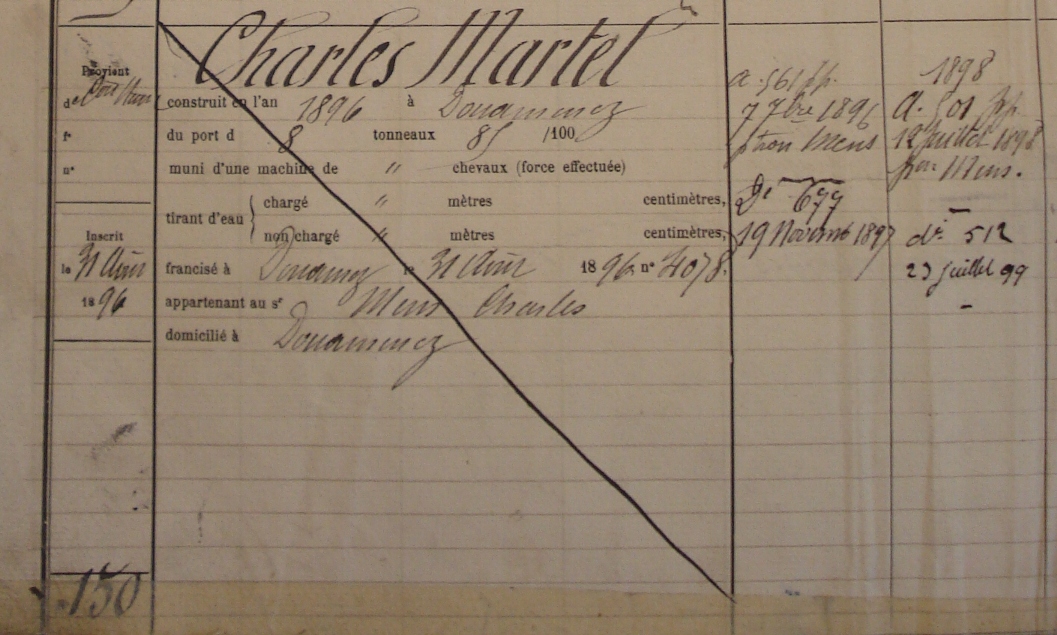 Charles Martel
Provient
de
construit en l'an 1896 à Douarnenez
fo
du port de 8 tonneaux 85 /100
no
muni d'une machine de " chevaux (force effectuée)
tirant d'eau { chargé " mètres centimètres,
non chargé " mètres centimètres,
Inscrit
le 31 Août
1896
francisé à Douarnenez le 31 Août 1896 no 4078.
appartenant au sr Mens Charles
domicilié à Douarnenez
150
a. 561 pp.
7 7bre 1896
patron Mens
Do 677
19 Novembre 1897
1898
a. 501 pp
12 Juillet 1898
pon Mens.
do 512
23 juillet 99